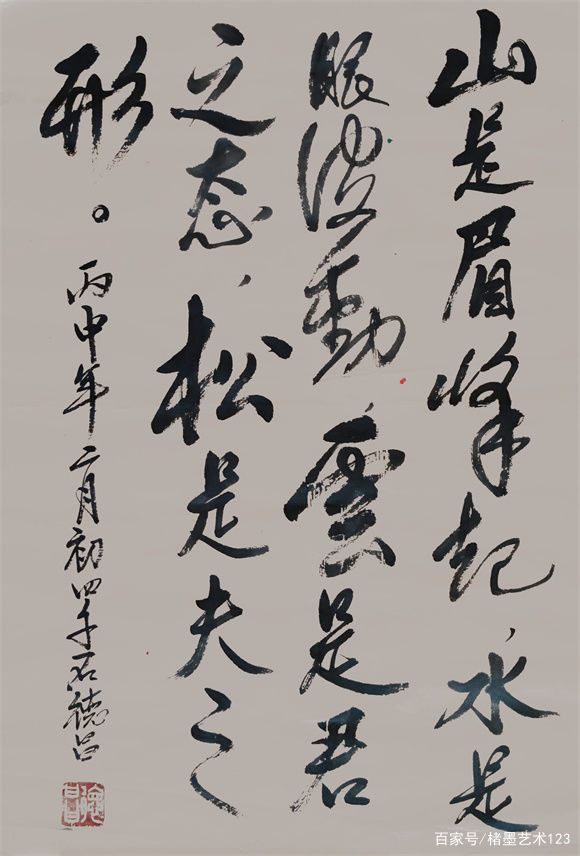 山是眉峰起，水是
眼波動，雲是君
之态，松是夫之
形。
丙申年二月初四于石德昌
百家号/楮墨艺术123